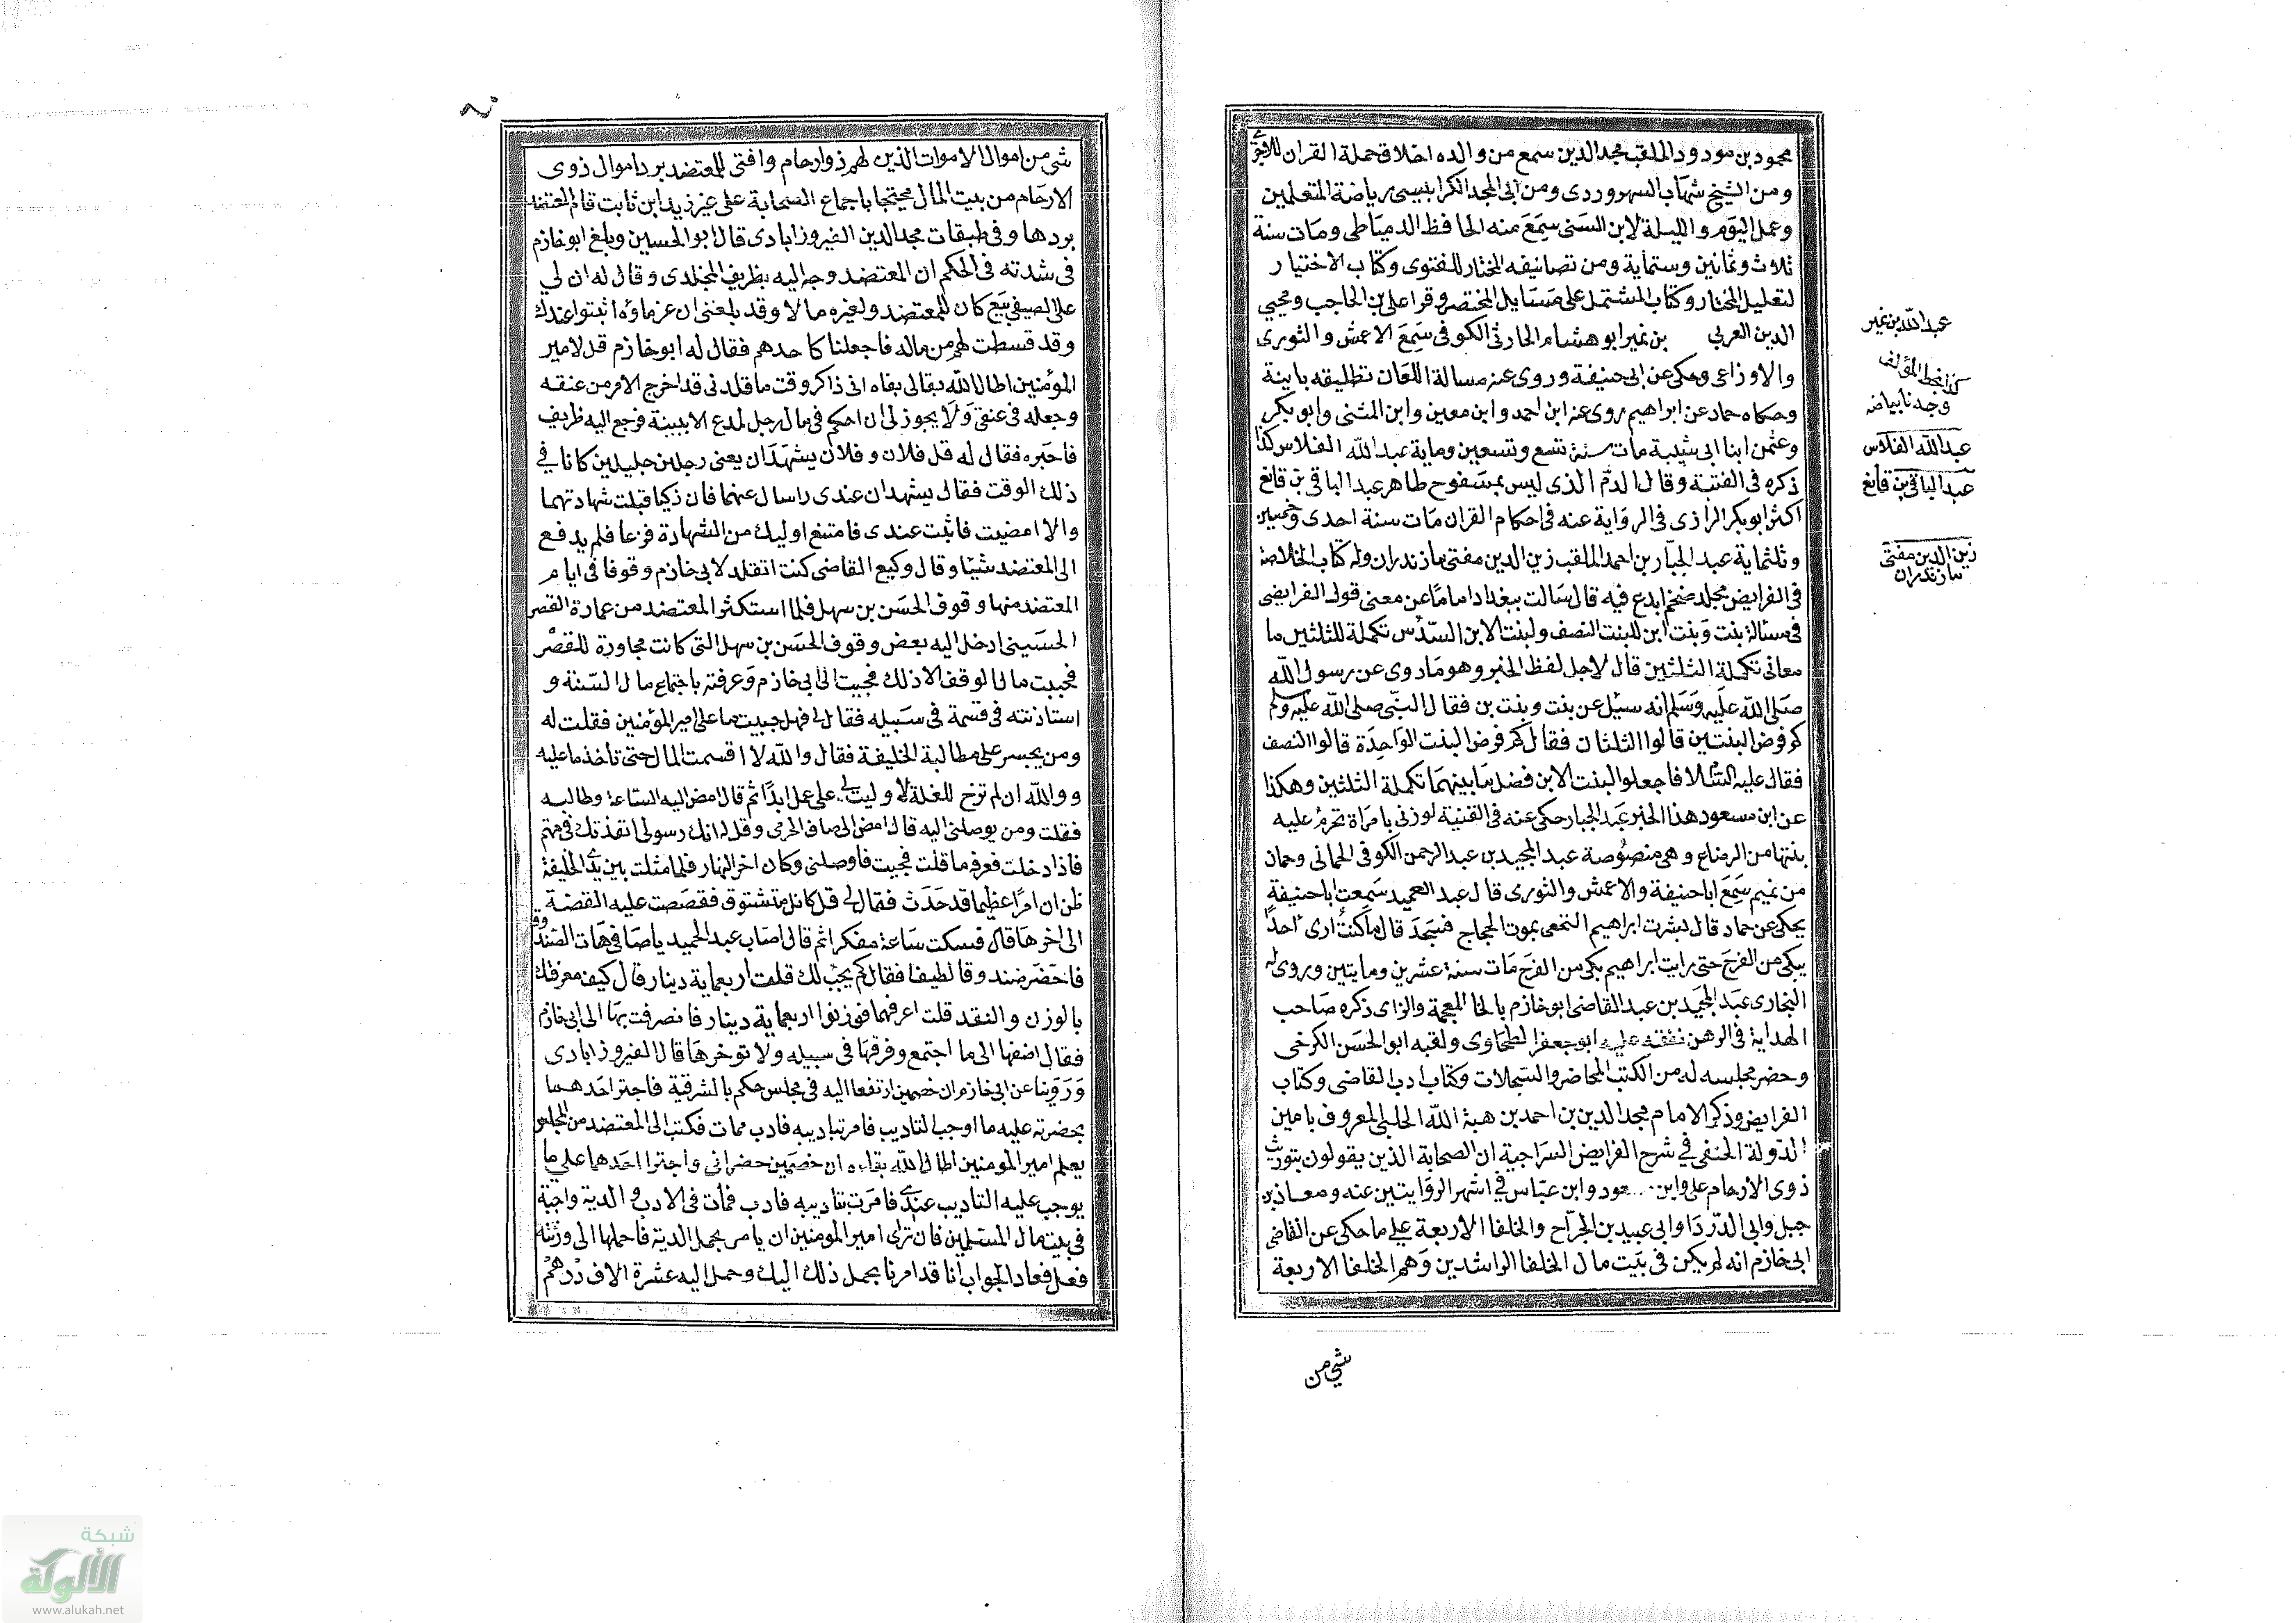 محمود بن مودود الملقب مجد الدين سمع من والده اخلاق حملة القران للاجري
ومن الشيخ شهاب السهروردى ومن ابى المجد الكرابيسى رياضة المتعلمين
وعمل اليوم والليلة لابن السنى سمع منه الحافظ الدمياطى ومات سنة
ثلاث وثمانين وستماية ومن تصانيفه المختار للفتوى وكتاب الاختيار
لتعليل المختار وكتاب المشتمل على مسايل المختصر وقرا على بن الحاجب ومحيي
الدين العربي بن نمير ابو هشام الحارثى الكوفى سمع الاعمش والثورى
والاوزاعى وحكى عن ابى حنيفة وروى عنه مسالة اللعان تطليقه باينة
وحكاه حماد عن ابراهيم روى عنه ابن احمد وابن معين وابن المثنى وابو بكر
وعثمن ابنا ابى شيبة مات سنة تسع وتسعين وماية عبد الله الفلاس كذا
ذكره فى القنية وقال الدم الذى ليس بمسفوح طاهر عبد الباقى بن قانع
اكثر ابو بكر الرازى فى الرواية عنه فى احكام القران مات سنة احدى وخمسين
وثلثماية عبد الجبار بن احمد الملقب زين الدين مفتى مازندران وله كتاب الخلاصة
فى الفرايض مجلد ضخم ابدع فيه قال سالت ببغداد اماما عن معنى قول الفرايضى
فى مسالة بنت وبنت ابن للبنت النصف ولبنت الابن السدس تكملة للثلثين ما
معانى تكملة الثلثين قال لاجل لفظ الخبر وهو ما روى عن رسول الله
صلى الله عليه وسلم انه سئل عن بنت وبنت بن فقال النبى صلى الله عليه وسلم
كم فرض البنتين قالوا الثلثان فقال كم فرض البنت الواحدة قالوا النصف
فقال عليه السلام فاجعلوا لبنت الابن فضل ما بينهما تكملة الثلثين وهكذا
عن ابن مسعود هذا الخبر عبد الجبار حكى عنه فى القنية لو زنى بامراة تحرم عليه
بنتها من الرضاع وهى منصوصة عبد المجيد بن عبد الرحمن الكوفى الحمانى وحمان
من تميم سمع ابا حنيفة والاعمش والثورى قال عبد الحميد سمعت ابا حنيفة
يحكى عن حماد قال بشرت ابراهيم النخعى بموت الحجاج فسجد قال ما كنت ارى احدا
يبكى من الفرح حتى رايت ابراهيم بكى من الفرح مات سنة عشرين ومايتين وروى له
البخارى عبد المجيد بن عبد القاضى ابو خازم بالخا المعجمة والزاى ذكره صاحب
الهداية فى الرهن تفقه عليه ابو جعفر الطحاوى ولقبه ابو الحسن الكرخى
وحضر مجلسه له من الكتب المحاضر والسجلات وكتاب ادب القاضى وكتاب
الفرايض وذكر الامام مجد الدين بن احمد بن هبة الله الحلبى المعروف بامين
الدولة الحنفى فى شرح الفرايض السراجية ان الصحابة الذين يقولون بتوريث
ذوى الارحام على وابن عود وابن عباس فى اشهر الروايتين عنه ومعاذ بن
جبل وابى الدردا وابى عبيد بن الجراح والخلفا الاربعة على ما حكى عن القاضى
ابى خازم انه لم يكن فى بيت مال الخلفا الراشدين وهم الخلفا الاربعة
شي من
عبد الله بن نمير
كذا بخط المؤلف
وجدنا بياض
عبد الله الفلاس
عبد الباقى بن قانع
زين الدين مفتى
مازندران
شى من اموال الاموات الذين لهم ذوارحام وافتى للمعتضد برد اموال ذوى
الارحام من بيت المال محتجا باجماع الصحابة على غير زيد ابن ثابت قام المعتضد
بردها وفى طبقات مجد الدين الفيروزابادى قال ابو الحسين وبلغ ابو خازم
فى شدته فى الحكم ان المعتضد وجه اليه بظريف المخلدى وقال له ان لي
على الصيفى بيع كان للمعتضد ولغيره مالا وقد بلغنى ان غرماؤه اثبتوا عندك
وقد قسطت لهم من ماله فاجعلنا كاحدهم فقال له ابو خازم قل لامير
المؤمنين اطال الله بقالى بقاه انى ذاكر وقت ما قلدنى قد اخرج الامر من عنقه
وجعله فى عنقى ولا يجوز لى ان احكم فى مال رجل لمدع الا ببينة فرجع اليه ظريف
فاخبره فقال له قل فلان وفلان يشهدان يعنى رجلين جليلين كانا في
ذلك الوقت فقال يشهدان عندى واسال عنهما فان زكيا قبلت شهادتهما
والا امضيت فاثبت عندى فامتنع اوليك من الشهادة فزعا فلم يدفع
الى المعتضد شيئا وقال وكيع القاضى كنت اتقلد لابى خازم وقوفا فى ايام
المعتضد منها وقوف الحسن بن سهل فلما استكثر المعتضد من عمارة القصر
الحسينى ادخل اليه بعض وقوف الحسن بن سهل التى كانت مجاورة للقصر
فجبيت مال الوقف الا ذلك فجيت الى ابى خازم وعرفته باجتماع مال السنة و
استاذنته فى قسمة فى سبيله فقال لى فهل جبيت ما على امير المؤمنين فقلت له
ومن يجسر على مطالبة الخليفة فقال والله لا اقسمت المال حتى تاخذ ما عليه
ووالله ان لم تزح للغلة لا وليت لى على عمل ابدا ثم قال امض اليه الساعة وطالبه
فقلت ومن يوصلنى اليه قال امض الى صافى الحرمى وقل له انك رسولى انفذتك فى مهم
فاذا دخلت فعرفه ما قلت فجيت فاوصلنى وكان اخر النهار فلما مثلت بين يدى الخليفة
ظن ان امرا عظيما قد حدث فقال لى قل كانك متشوق فقصصت عليه القصة
الى اخرها قال فسكت ساعة مفكرا ثم قال اصاب عبد الحميد يا صافى هات الصندوق
فاحضر صندوقا لطيفا فقال كم يجب لك قلت اربعماية دينار قال كيف معرفتك
بالوزن والنقد قلت اعرفهما فوزنوا اربعماية دينار فانصرفت بها الى ابى خازم
فقال اضفها الى ما اجتمع وفرقها فى سبيله ولا توخرها قال الفيروزابادى
وروينا عن ابى خازم ان خصمين ارتفعا اليه فى مجلس حكم بالشرقية فاجترا احدهما
بحضرته عليه ما اوجب التاديب فامر بتاديبه فادب فمات فكتب الى المعتضد من المجلس
يعلم امير المومنين اطال الله بقاءه ان خصمين حضرانى واجترا احدهما على ما
يوجب عليه التاديب عندى فامرت بتاديبه فادب فمات فى الادب و الدية واجبة
فى بيت مال المسلمين فان راى امير المومنين ان يامر بحمل الدية فاحملها الى ورثته
فعل فعاد الجواب انا قد امرنا بحمل ذلك اليك وحمل اليه عشرة الاف درهم
شبكة
الألوكة
www.alukah.net